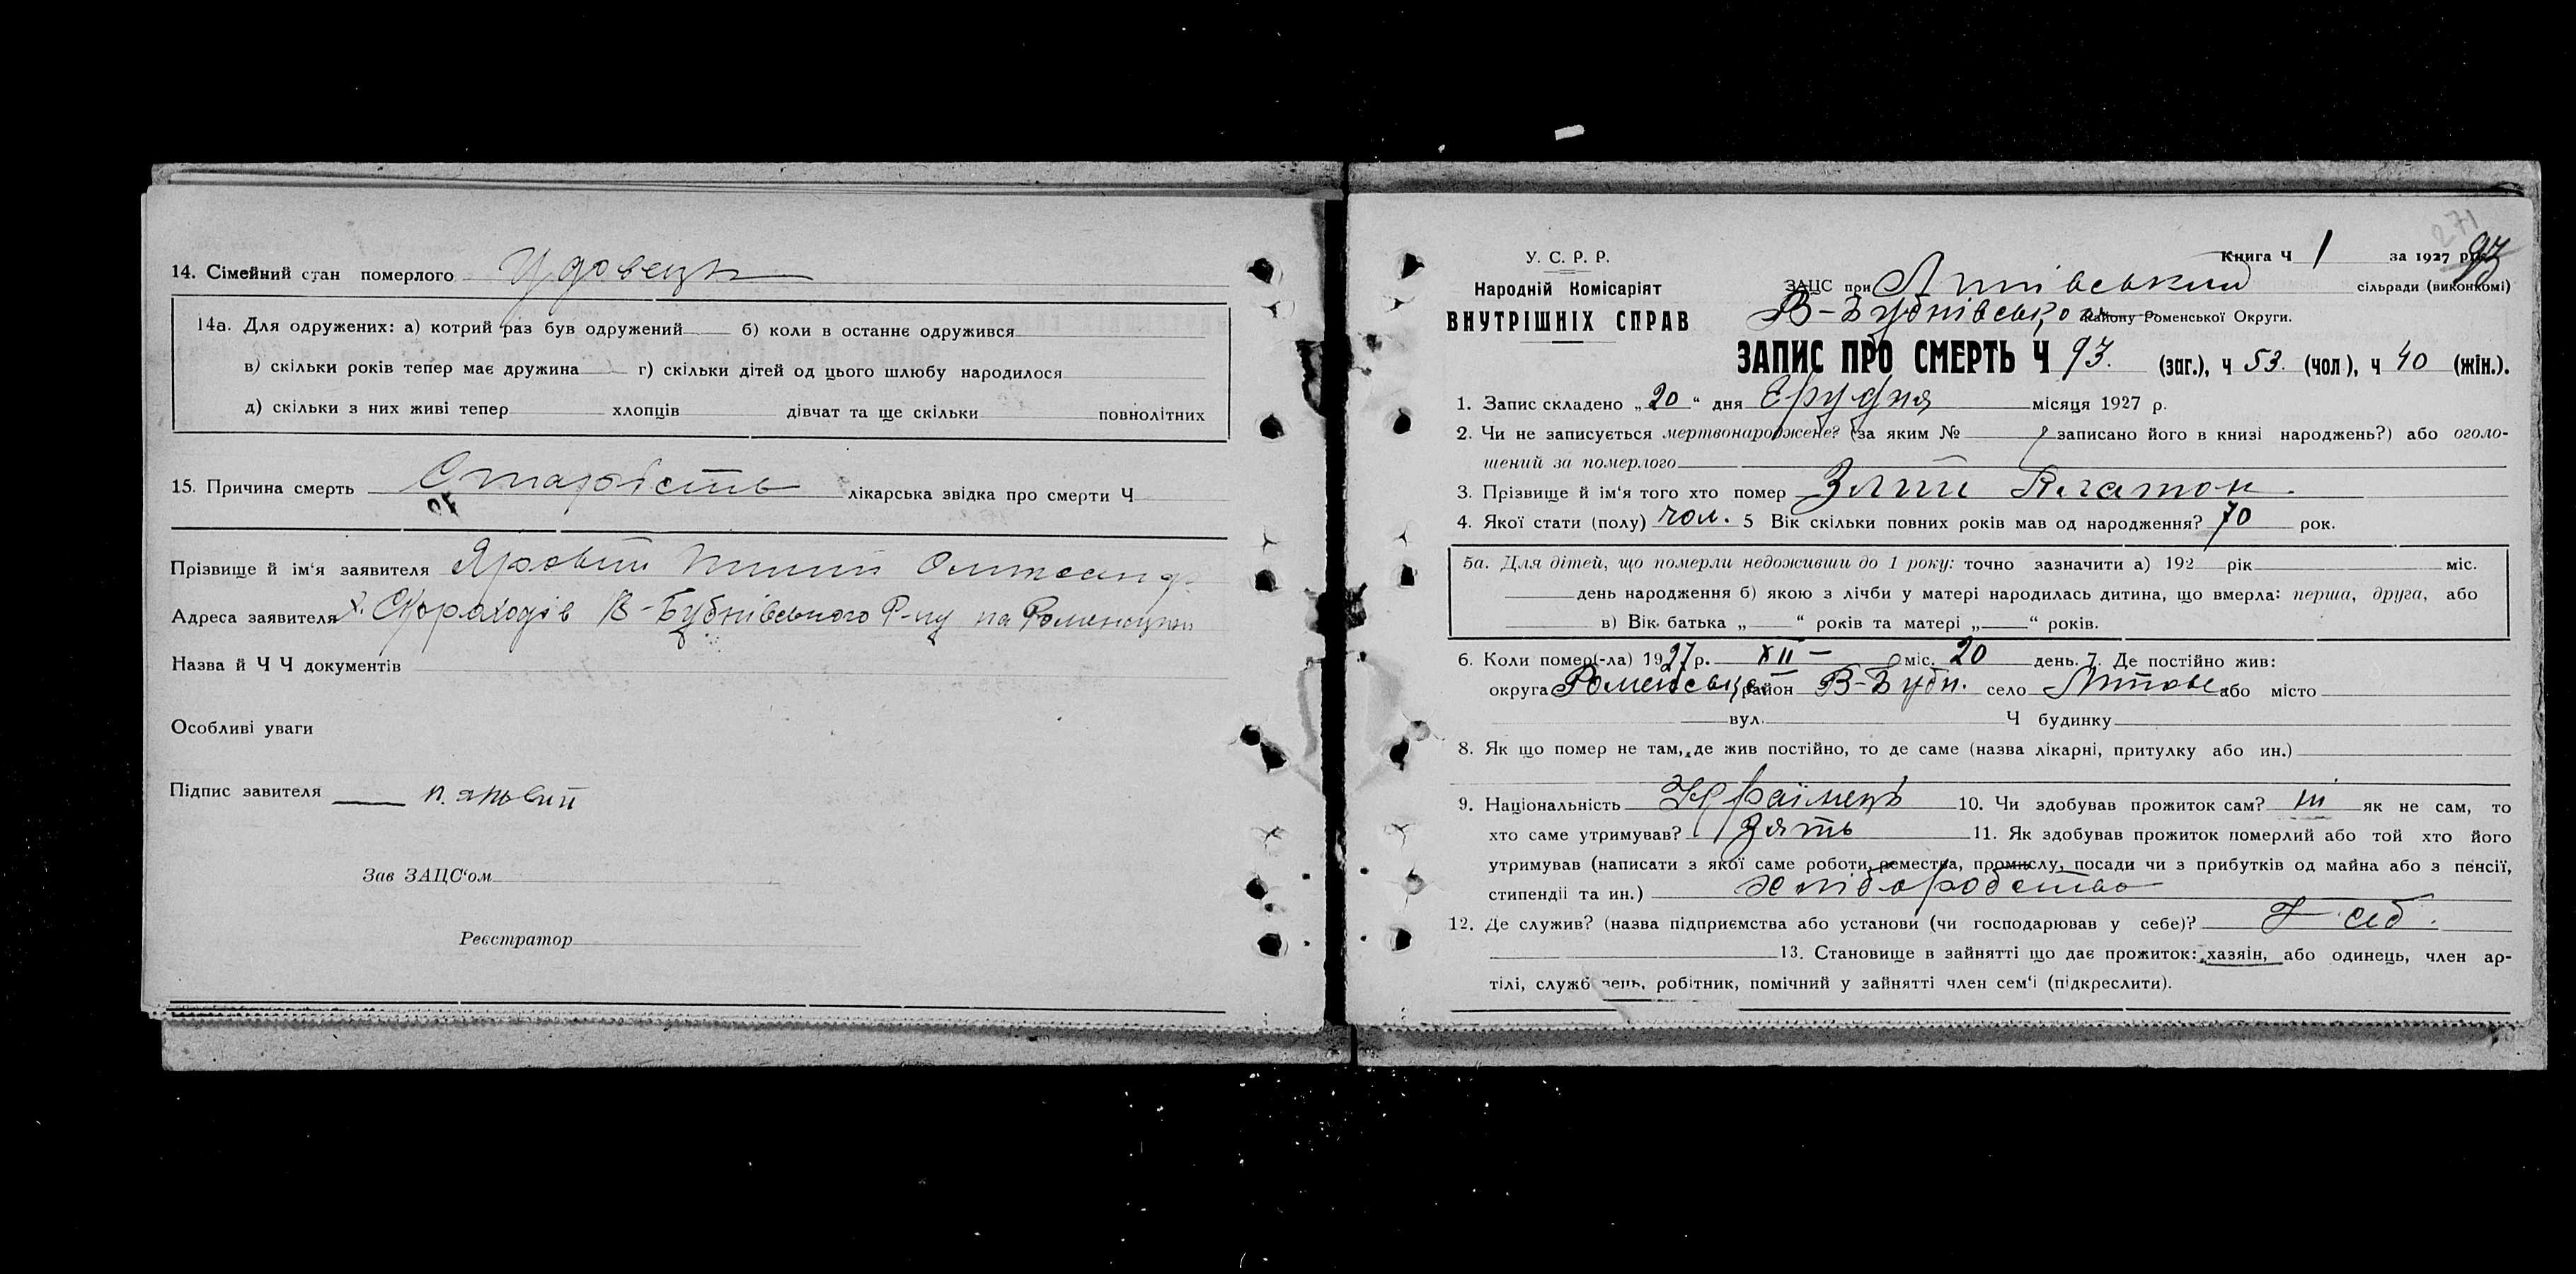 14. Сімейний стан померлого Удовець
14а. Для одружених: а) котрий раз був одружений б) коли в останнє одружився
в) скільки років тепер має дружина г) скільки дітей од цього шлюбу народилося
д) скільки з них живі тепер хлопців дівчат та ще скільки повнолітних
15. Причина смерть Старість лікарська звідка про смерти Ч
Прізвище й ім‘я заявителя Яровий
Адреса заявителя х. Скороходів В-Бубнівського Р-ну на Роменщині
Назва й Ч Ч документів
Особливі уваги
Підпис завителя
Зав ЗАЦС‘ом
Реєстратор
271
У. С. Р. Р.
Народній Комісаріят
ВНУТРІШНІХ СПРАВ
Книга Ч 1 за 1927 рік 93
ЗАЦС при сільради (виконкомі)
В-Бубнівського району Роменської Округи.
ЗАПИС ПРО СМЕРТЬ Ч 93. (заг.), ч 53. (чол), ч 40 (жін.).
1. Запис складено „20“ дня Грудня місяця 1927 р.
2. Чи не записується мертвонароджене? (за яким № записано його в книзі народжень?) або оголо-
шений за померлого
3. Прізвище й ім‘я того хто помер Злий Платон.
4. Якої стати (полу) чол. 5 Вік скільки повних років мав од народження? 70 рок.
5а. Для дітей, що померли недоживши до 1 року: точно зазначити а) 192 рік міс.
день народження б) якою з лічби у матері народилась дитина, що вмерла: перша, друга, або
в) Вік. батька „ “ років та матері „ “ років.
6. Коли помер(-ла) 1927 р. XII – міс. 20 день. 7. Де постійно жив:
округа Роменська район В-Бубн. село або місто
вул. Ч будинку
8. Як що помер не там, де жив постійно, то де саме (назва лікарні, притулку або ин.)
9. Національність Українець 10. Чи здобував прожиток сам? ні як не сам, то
хто саме утримував? Зять 11. Як здобував прожиток померлий або той хто його
утримував (написати з якої саме роботи, ремества, промислу, посади чи з прибутків од майна або з пенсії,
стипендії та ин.) хліборобство
12. Де служив? (назва підприємства або установи (чи господарював у себе)? У себ.
13. Становище в зайнятті що дає прожиток: хазяін, або одинець, член ар-
тілі, службовець, робітник, помічний у зайнятті член сем‘ї (підкреслити).